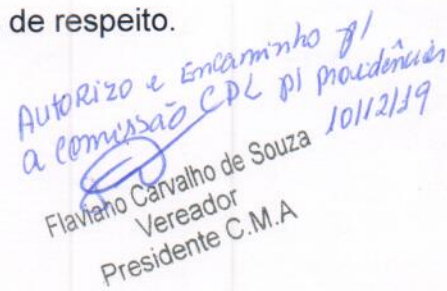 de respeito.
Autorizo e Encaminho p/
a comissão CPL p/ providências
10/12/19
Flaviano Carvalho de Souza
Vereador
Presidente C.M.A